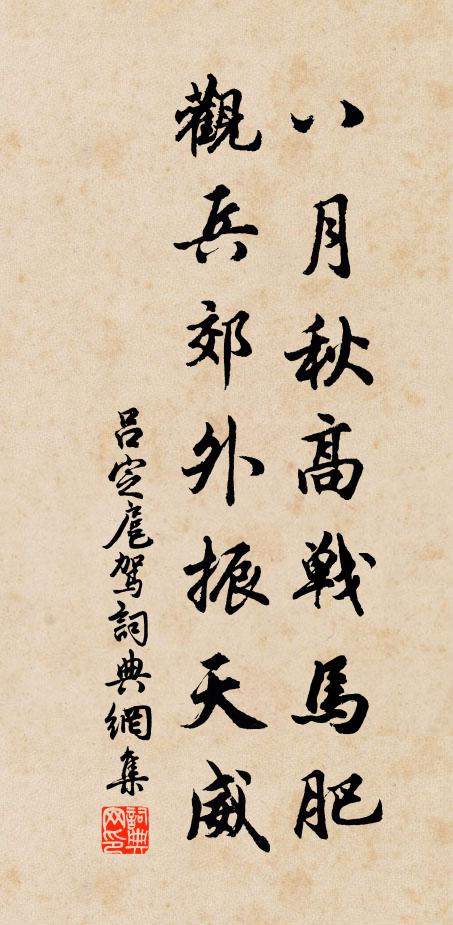 八月秋高戰馬肥
觀兵郊外振天威
吕定扈駕詞典網集
詞典网印